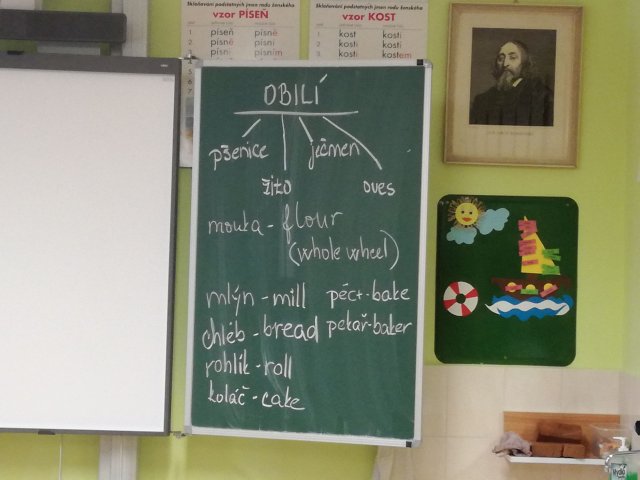 Skloňování podstatných jmen rodu ženského
vzor PÍSEŇ
1 píseň písně
2 písně písní
3 písni písním
Skloňování podstatných jmen rodu ženského
vzor KOST
1. kost kosti
2. kosti kostí
3. kosti kostem
OBILÍ
pšenice ječmen
žito oves
mouka - flour
(whole wheel)
mlýn - mill péct - bake
chléb - bread pekař - baker
rohlík - roll
koláč - cake